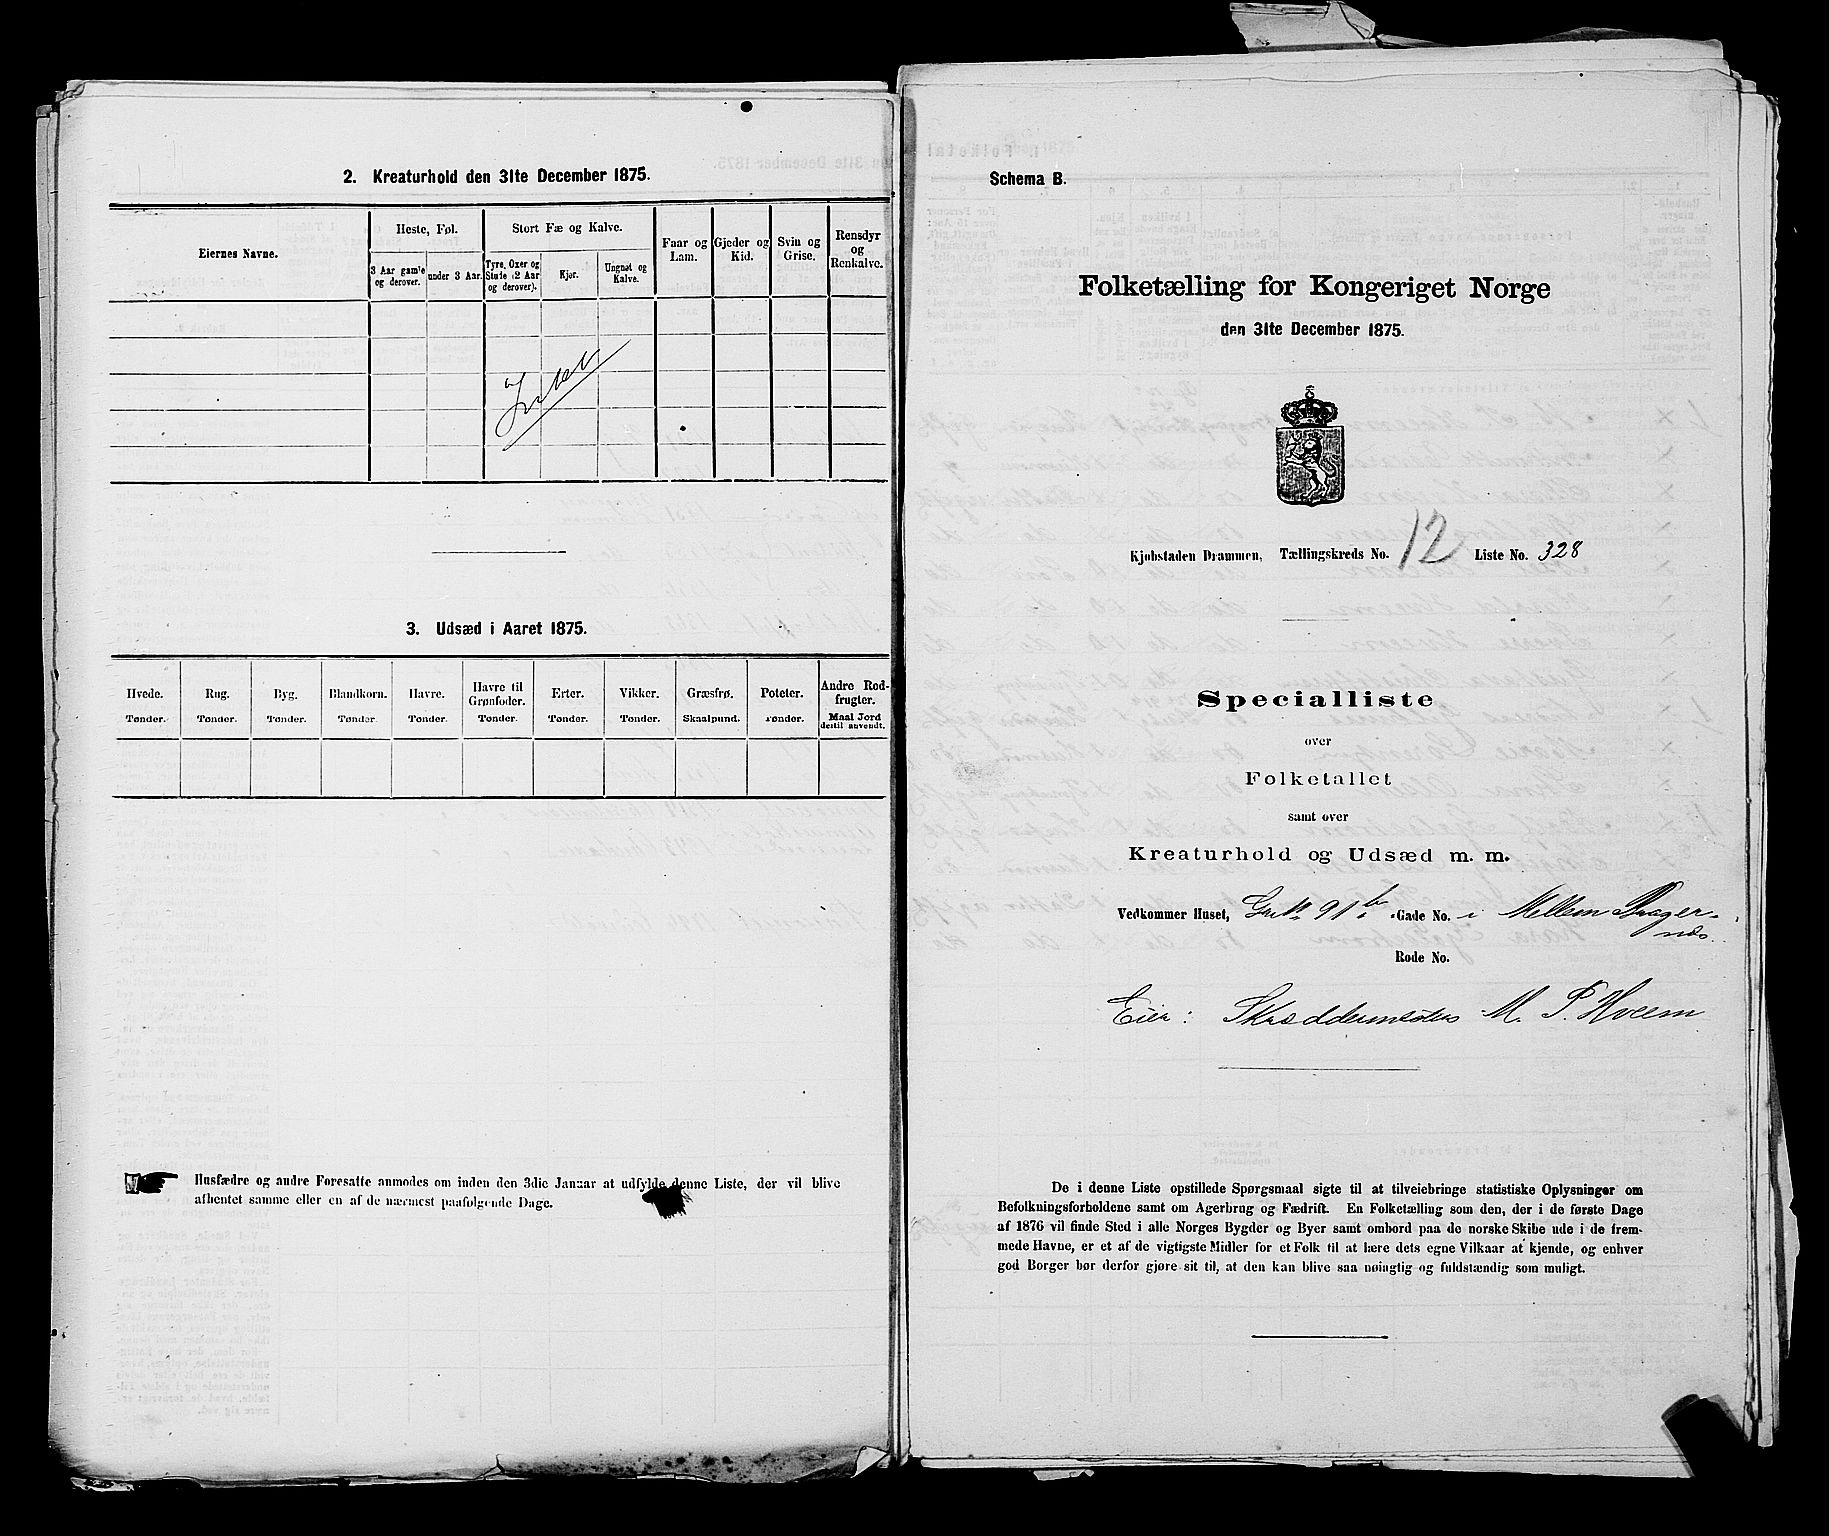 2. Kreaturhold den 31te December 1875.
Eiernes Navne.
Heste, Føl.
3 Aar gamle og derover.
under 3 Aar.
Stort Fæ og Kalve.
Tyre, Oxer og Stude (2 Aar og derover).
Kjør.
Ungnøt og Kalve.
Faar og Lam.
Gjeder og Kid.
Svin og Grise.
Rensdyr og Renkalve.
Intet
3. Udsæd i Aaret 1875.
Hvede. Tønder.
Rug. Tønder.
Byg. Tønder.
Blandkorn. Tønder.
Havre. Tønder.
Havre til Grønfoder. Tønder.
Erter. Tønder.
Vikker. Tønder.
Græsfrø. Skaalpund.
Poteter. Tønder.
Andre Rodfrugter. Maal Jord dertil anvendt.
Husfædre og andre Foresatte anmodes om inden den 3die Januar at udfylde denne Liste, der vil blive
afhentet samme eller en af de nærmest paafølgende Dage.
Schema B.
Folketælling for Kongeriget Norge
den 31te December 1875.
Kjøbstaden Drammen, Tællingskreds No. 12 Liste No. 328
Specialliste
over
Folketallet
samt over
Kreaturhold og Udsæd m. m.
Vedkommer Huset, 91 b Gade No. i Mellem Brager-
næs.
Rode No.
Eier: Skræddermester M. P. Hveem
De i denne Liste opstillede Spørgsmaal sigte til at tilveiebringe statistiske Oplysninger om
Befolkningsforholdene samt om Agerbrug og Fædrift. En Folketælling som den, der i de første Dage
af 1876 vil finde Sted i alle Norges Bygder og Byer samt ombord paa de norske Skibe ude i de frem-
mede Havne, er et af de vigtigste Midler for et Folk til at lære dets egne Vilkaar at kjende, og enhver
god Borger bør derfor gjøre sit til, at den kan blive saa nøiagtig og fuldstændig som muligt.